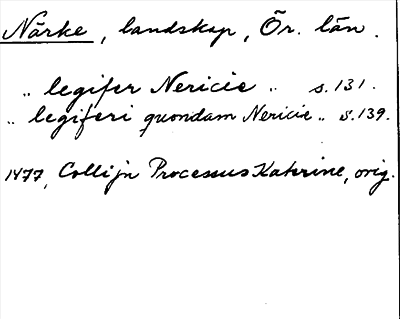 Närke, landskap, Ör. län.
„ legifer Nericie „ s. 131.
„ legiferi quondam Nericie „ s. 139.
1477, Collijn Processus Katerine, orig.